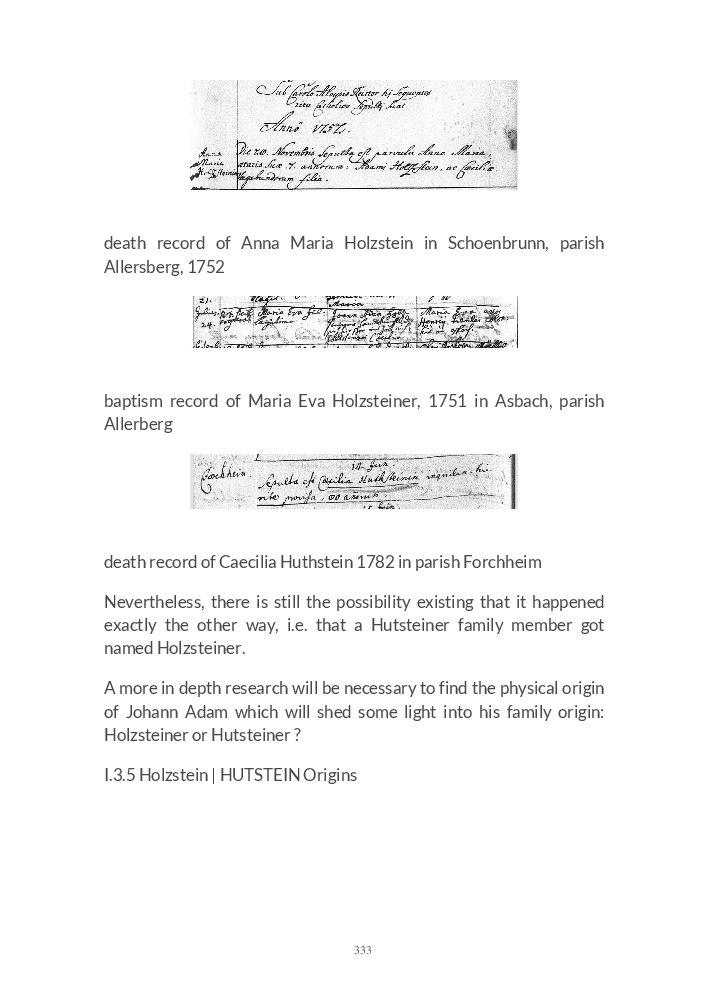 Sub Carolo Aloysio Reitter hi Sequentes
ritu Catholico Sepulti sunt
Anno 1752.
Anna
Maria
Holzsteinerin
Die 20. Novembris Sepulta est parvula Anna Maria,
aetatis suae 7. annorum: Adami Holzstein, ac Caeciliae
vagabundorum filia.
death record of Anna Maria Holzstein in Schoenbrunn, parish
Allersberg, 1752
21.
Maria
Julius
24.
Maria Eva
Maria Eva
baptism record of Maria Eva Holzsteiner, 1751 in Asbach, parish
Allerberg
14. Jun.
Forchheim. Sepulta est Caecilia Huthsteinin inquilina hi
annorum.
death record of Caecilia Huthstein 1782 in parish Forchheim
Nevertheless, there is still the possibility existing that it happened
exactly the other way, i.e. that a Hutsteiner family member got
named Holzsteiner.
A more in depth research will be necessary to find the physical origin
of Johann Adam which will shed some light into his family origin:
Holzsteiner or Hutsteiner ?
I.3.5 Holzstein | HUTSTEIN Origins
333